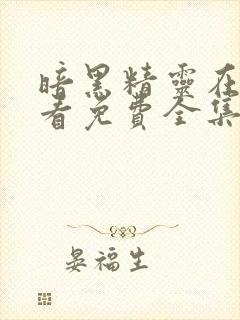 暗黑精靈在
看免費全集
晏福生